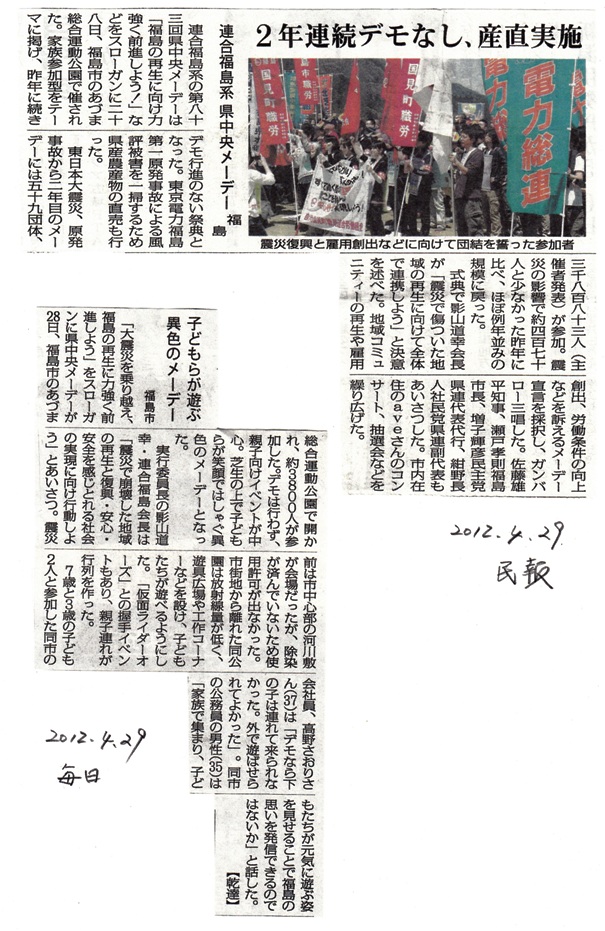 2年連続デモなし、産直実施
連合福島系 県中央メーデー
福島
連合福島系の第八十
三回県中央メーデーは
「福島の再生に向け力
強く前進しよう！」な
どをスローガンに二十
八日、福島市のあづま
総合運動公園で催され
た。家族参加型をテー
マに掲げ、昨年に続き
デモ行進のない祭典と
なった。東京電力福島
第一原発事故による風
評被害を一掃するため
県産農産物の直売も行
った。
東日本大震災、原発
事故から二年目のメー
デーには五十九団体、
国見町職労
国見町職労
電力総連
震災復興と雇用創出などに向けて団結を誓った参加者
三千八百八十三人（主
催者発表）が参加。震
災の影響で約四百七十
人と少なかった昨年に
比べ、ほぼ例年並みの
規模に戻った。
式典で影山道幸会長
が「震災で傷ついた地
域の再生に向けて全体
で連携しよう」と決意
を述べた。地域コミュ
ニティーの再生や雇用
創出、労働条件の向上
などを訴えるメーデー
宣言を採択し、ガンバ
ロー三唱した。佐藤雄
平知事、瀬戸孝則福島
市長、増子輝彦民主党
県連代表代行、紺野長
人社民党県連副代表も
あいさつした。市内在
住のａｖｅさんのコン
サート、抽選会などを
繰り広げた。
2012.4.29
民報
子どもらが遊ぶ
異色のメーデー
福島市
「大震災を乗り越え、
福島の再生に力強く前
進しよう」をスローガ
ンに県中央メーデーが
28日、福島市のあづま
総合運動公園で開か
れ、約3800人が参
加した。デモは行わず、
親子向けイベントが中
心。芝生の上で子ども
らが笑顔ではしゃぐ異
色のメーデーとなっ
た。
実行委員長の影山道
幸・連合福島会長は
「震災で崩壊した地域
の再生と復興・安心・
安全を感じとれる社会
の実現に向け行動しよ
う」とあいさつ。震災
前は市中心部の河川敷
が会場だったが、除染
が済んでいないため使
用許可が出なかった。
市街地から離れた同公
園は放射線量が低く、
遊具広場や工作コーナ
ーなどを設け、子ども
たちが遊べるようにし
た。「仮面ライダーオ
ーズ」との握手イベン
トもあり、親子連れが
行列を作った。
7歳と3歳の子ども
2人と参加した同市の
会社員、高野さおりさ
ん(37)は「デモなら下
の子は連れて来られな
かった。外で遊ばせら
れてよかった」。同市
の公務員の男性(35)は
「家族で集まり、子ど
もたちが元気に遊ぶ姿
を見せることで福島の
思いを発信できるので
はないか」と話した。
【乾達】
2012.4.29
毎日